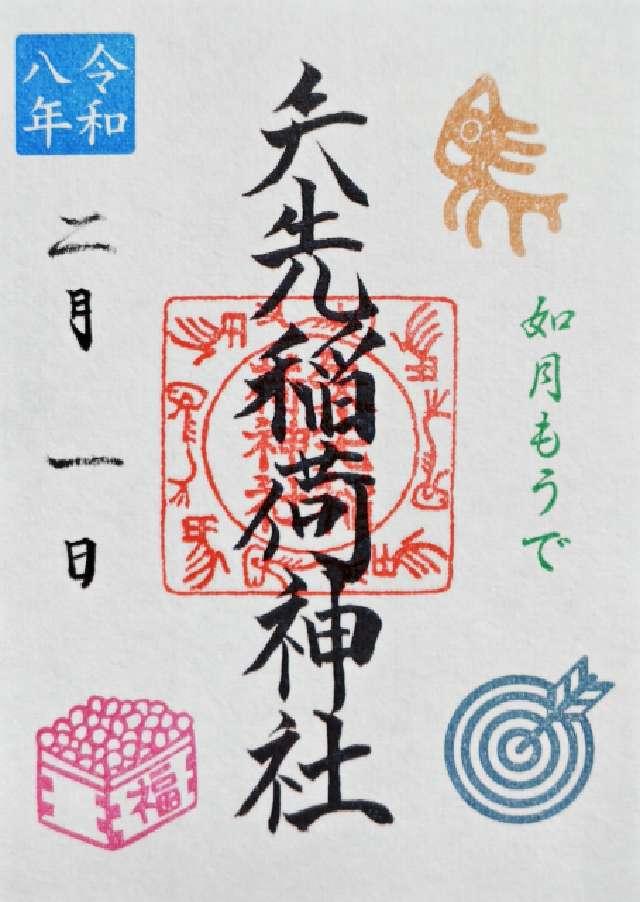 如月もうで
矢先稲荷神社
令和
八年
二月 一日
福